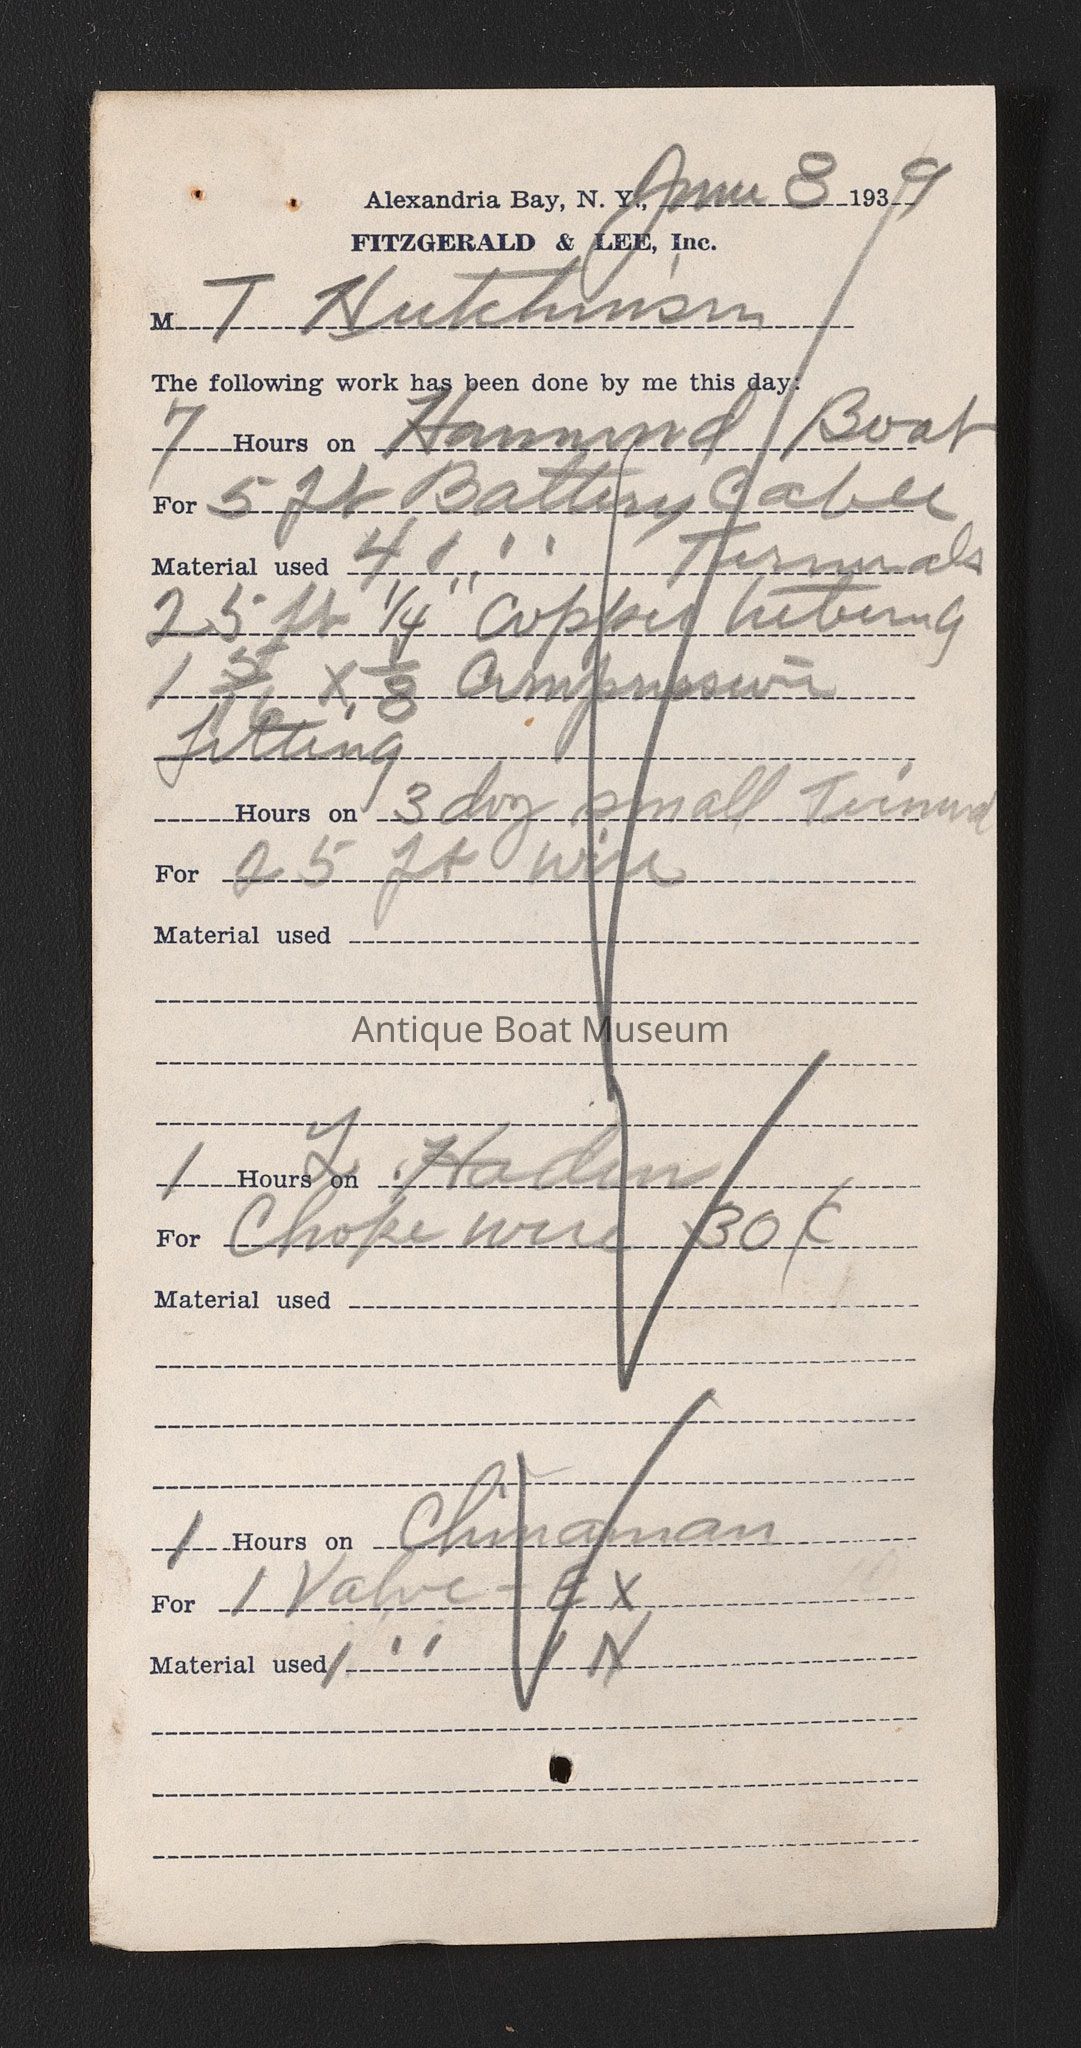 Alexandria Bay, N. Y., June 8 1939
FITZGERALD & LEE, Inc.
M T Hutchinson
The following work has been done by me this day:
7 Hours on Hammond Boat
For 5 ft Battery Cable
Material used 4 " " Terminals
25 ft 1/4" Copper tubing
1 5/16 x 1/8 Compression
fitting
Hours on 3 doz small Terminal
For 25 ft wire
Material used
Antique Boat Museum
1 Hours on L. Haden
For Choke wire 30¢
Material used
1 Hours on Chinaman
For 1 Valve - EX
Material used 1 " " IN